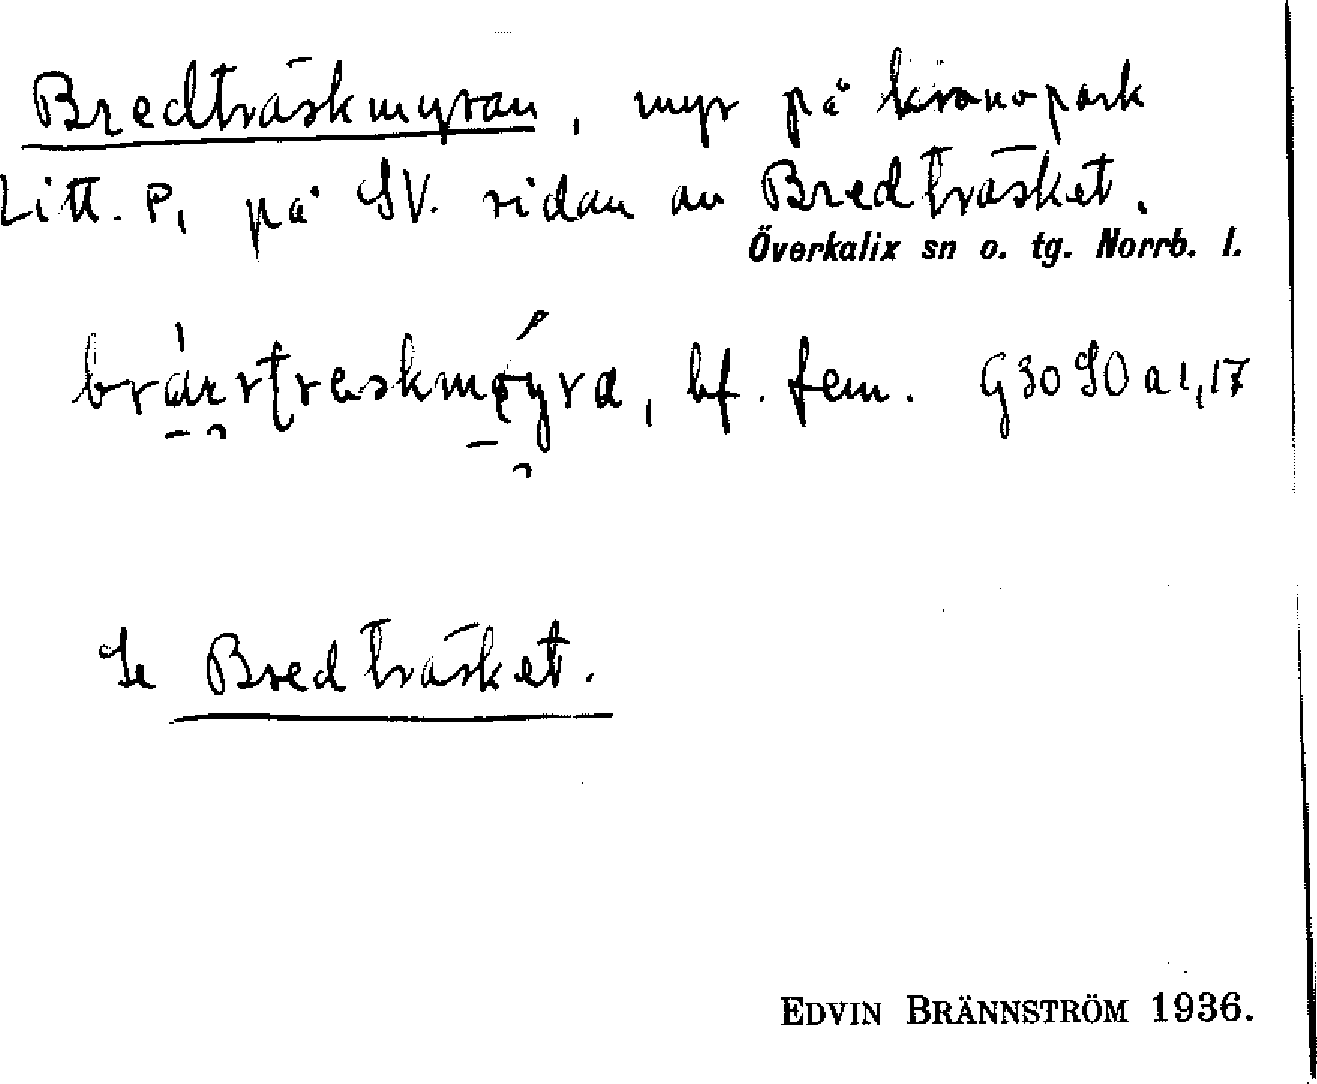 Bredträskmyran, myr på kronopark
Litt. P, på SV. sidan av Bredträsket.
Överkalix sn o. tg. Norrb. l.
bf. fem. G30 SO a 1,17
Se Bredträsket.
EDVIN BRÄNNSTRÖM 1936.